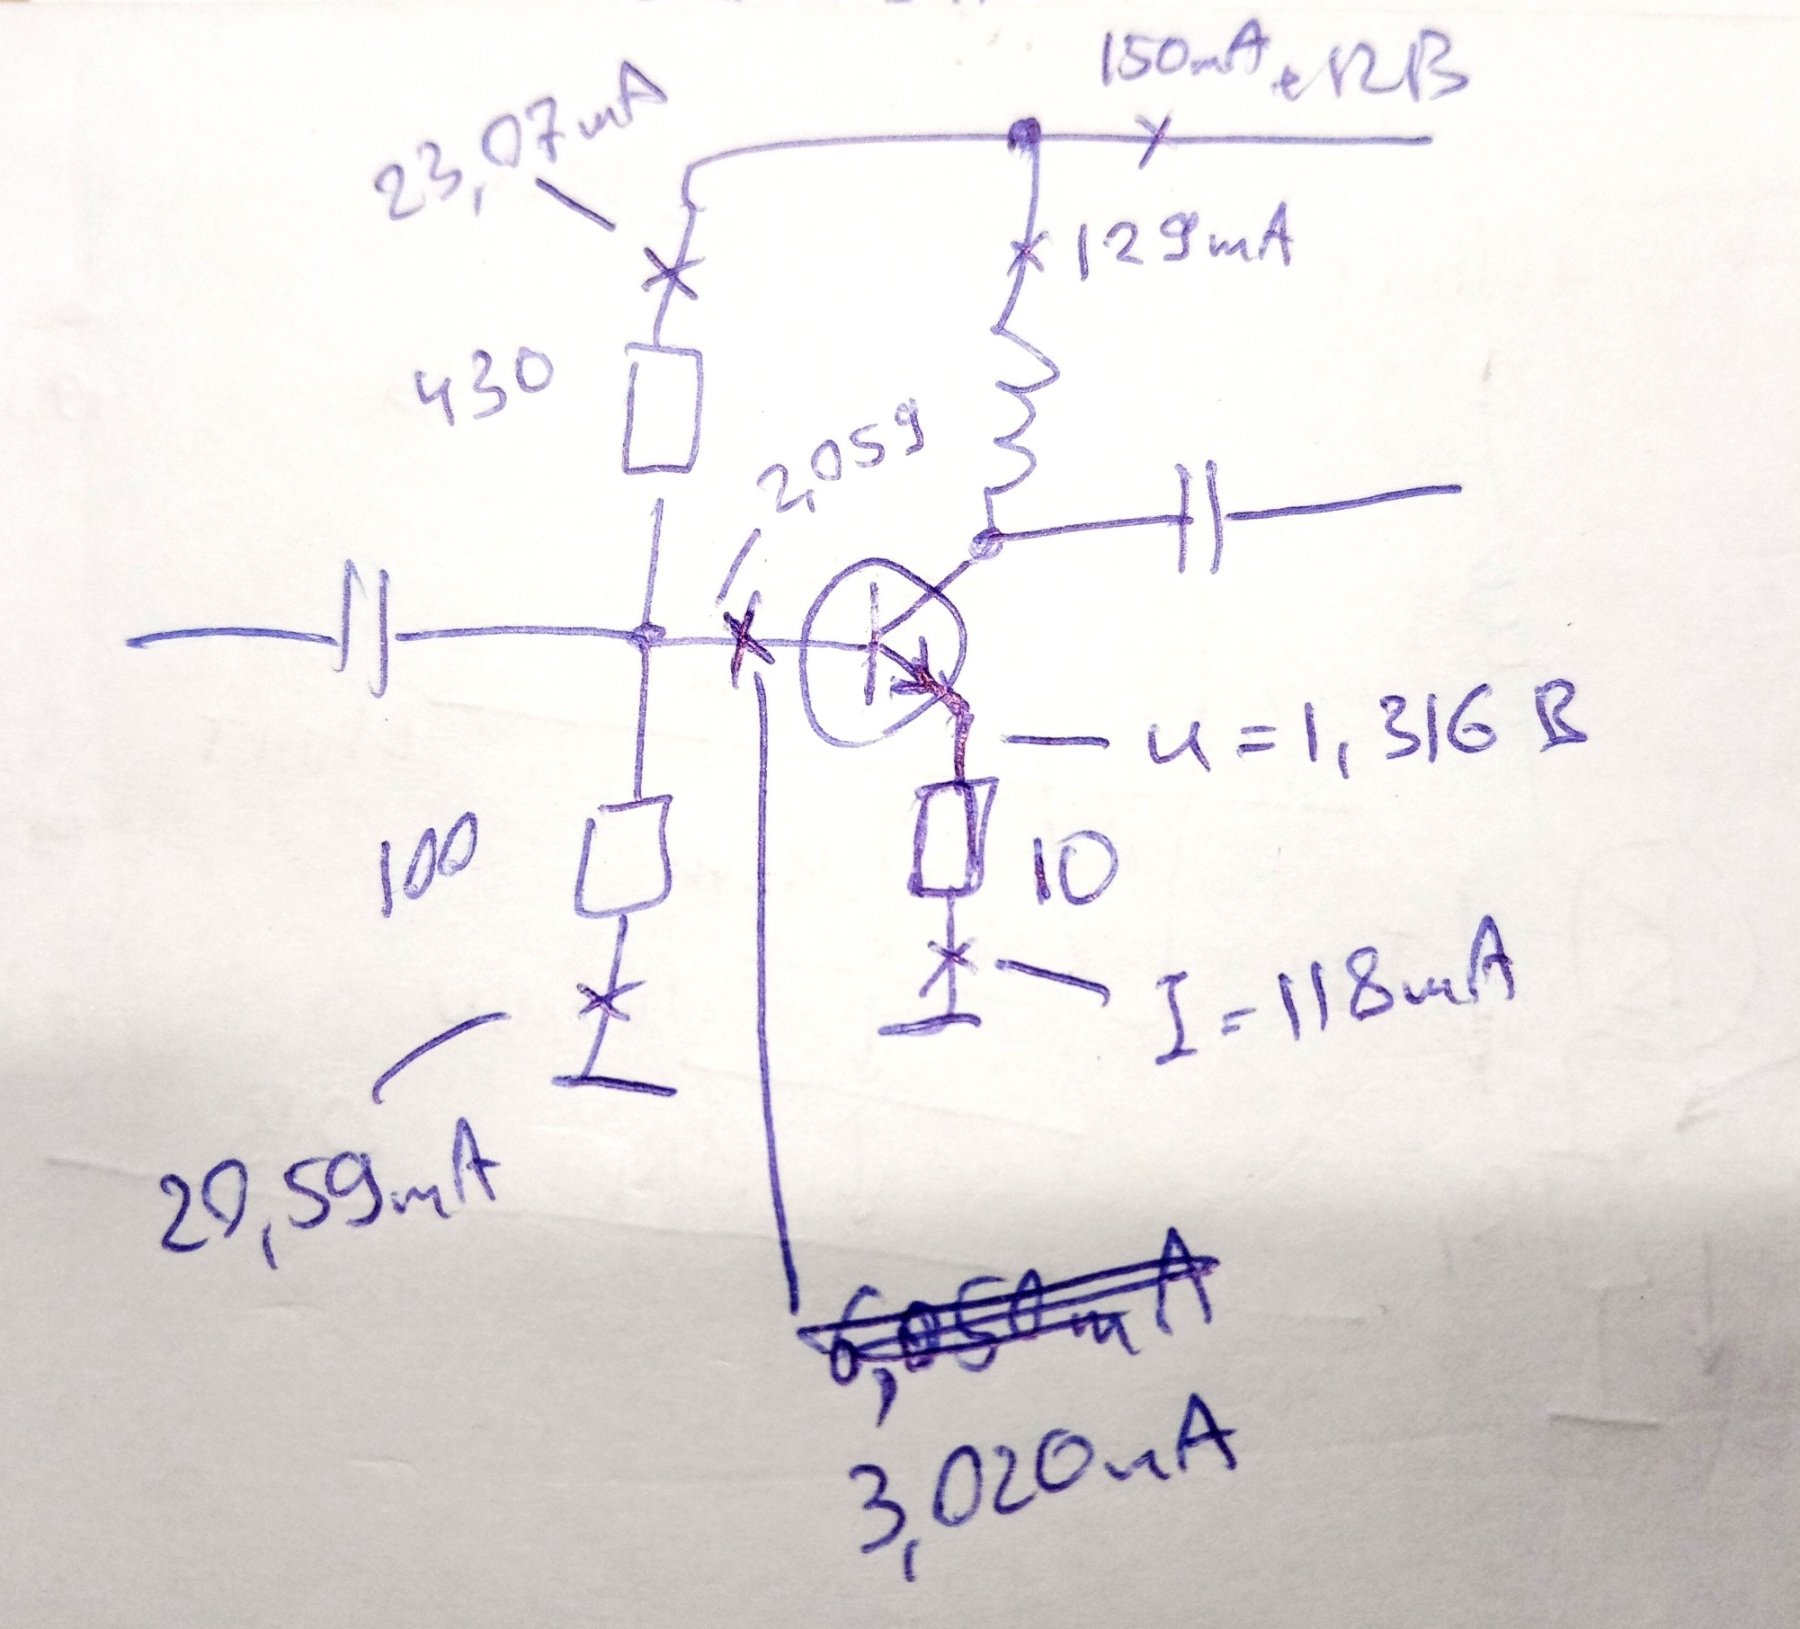 150mA +12В
23,07mA
129mA
430
2,059
u=1,316 В
100
10
I=118mA
20,59mA
6,050mA
3,020mA